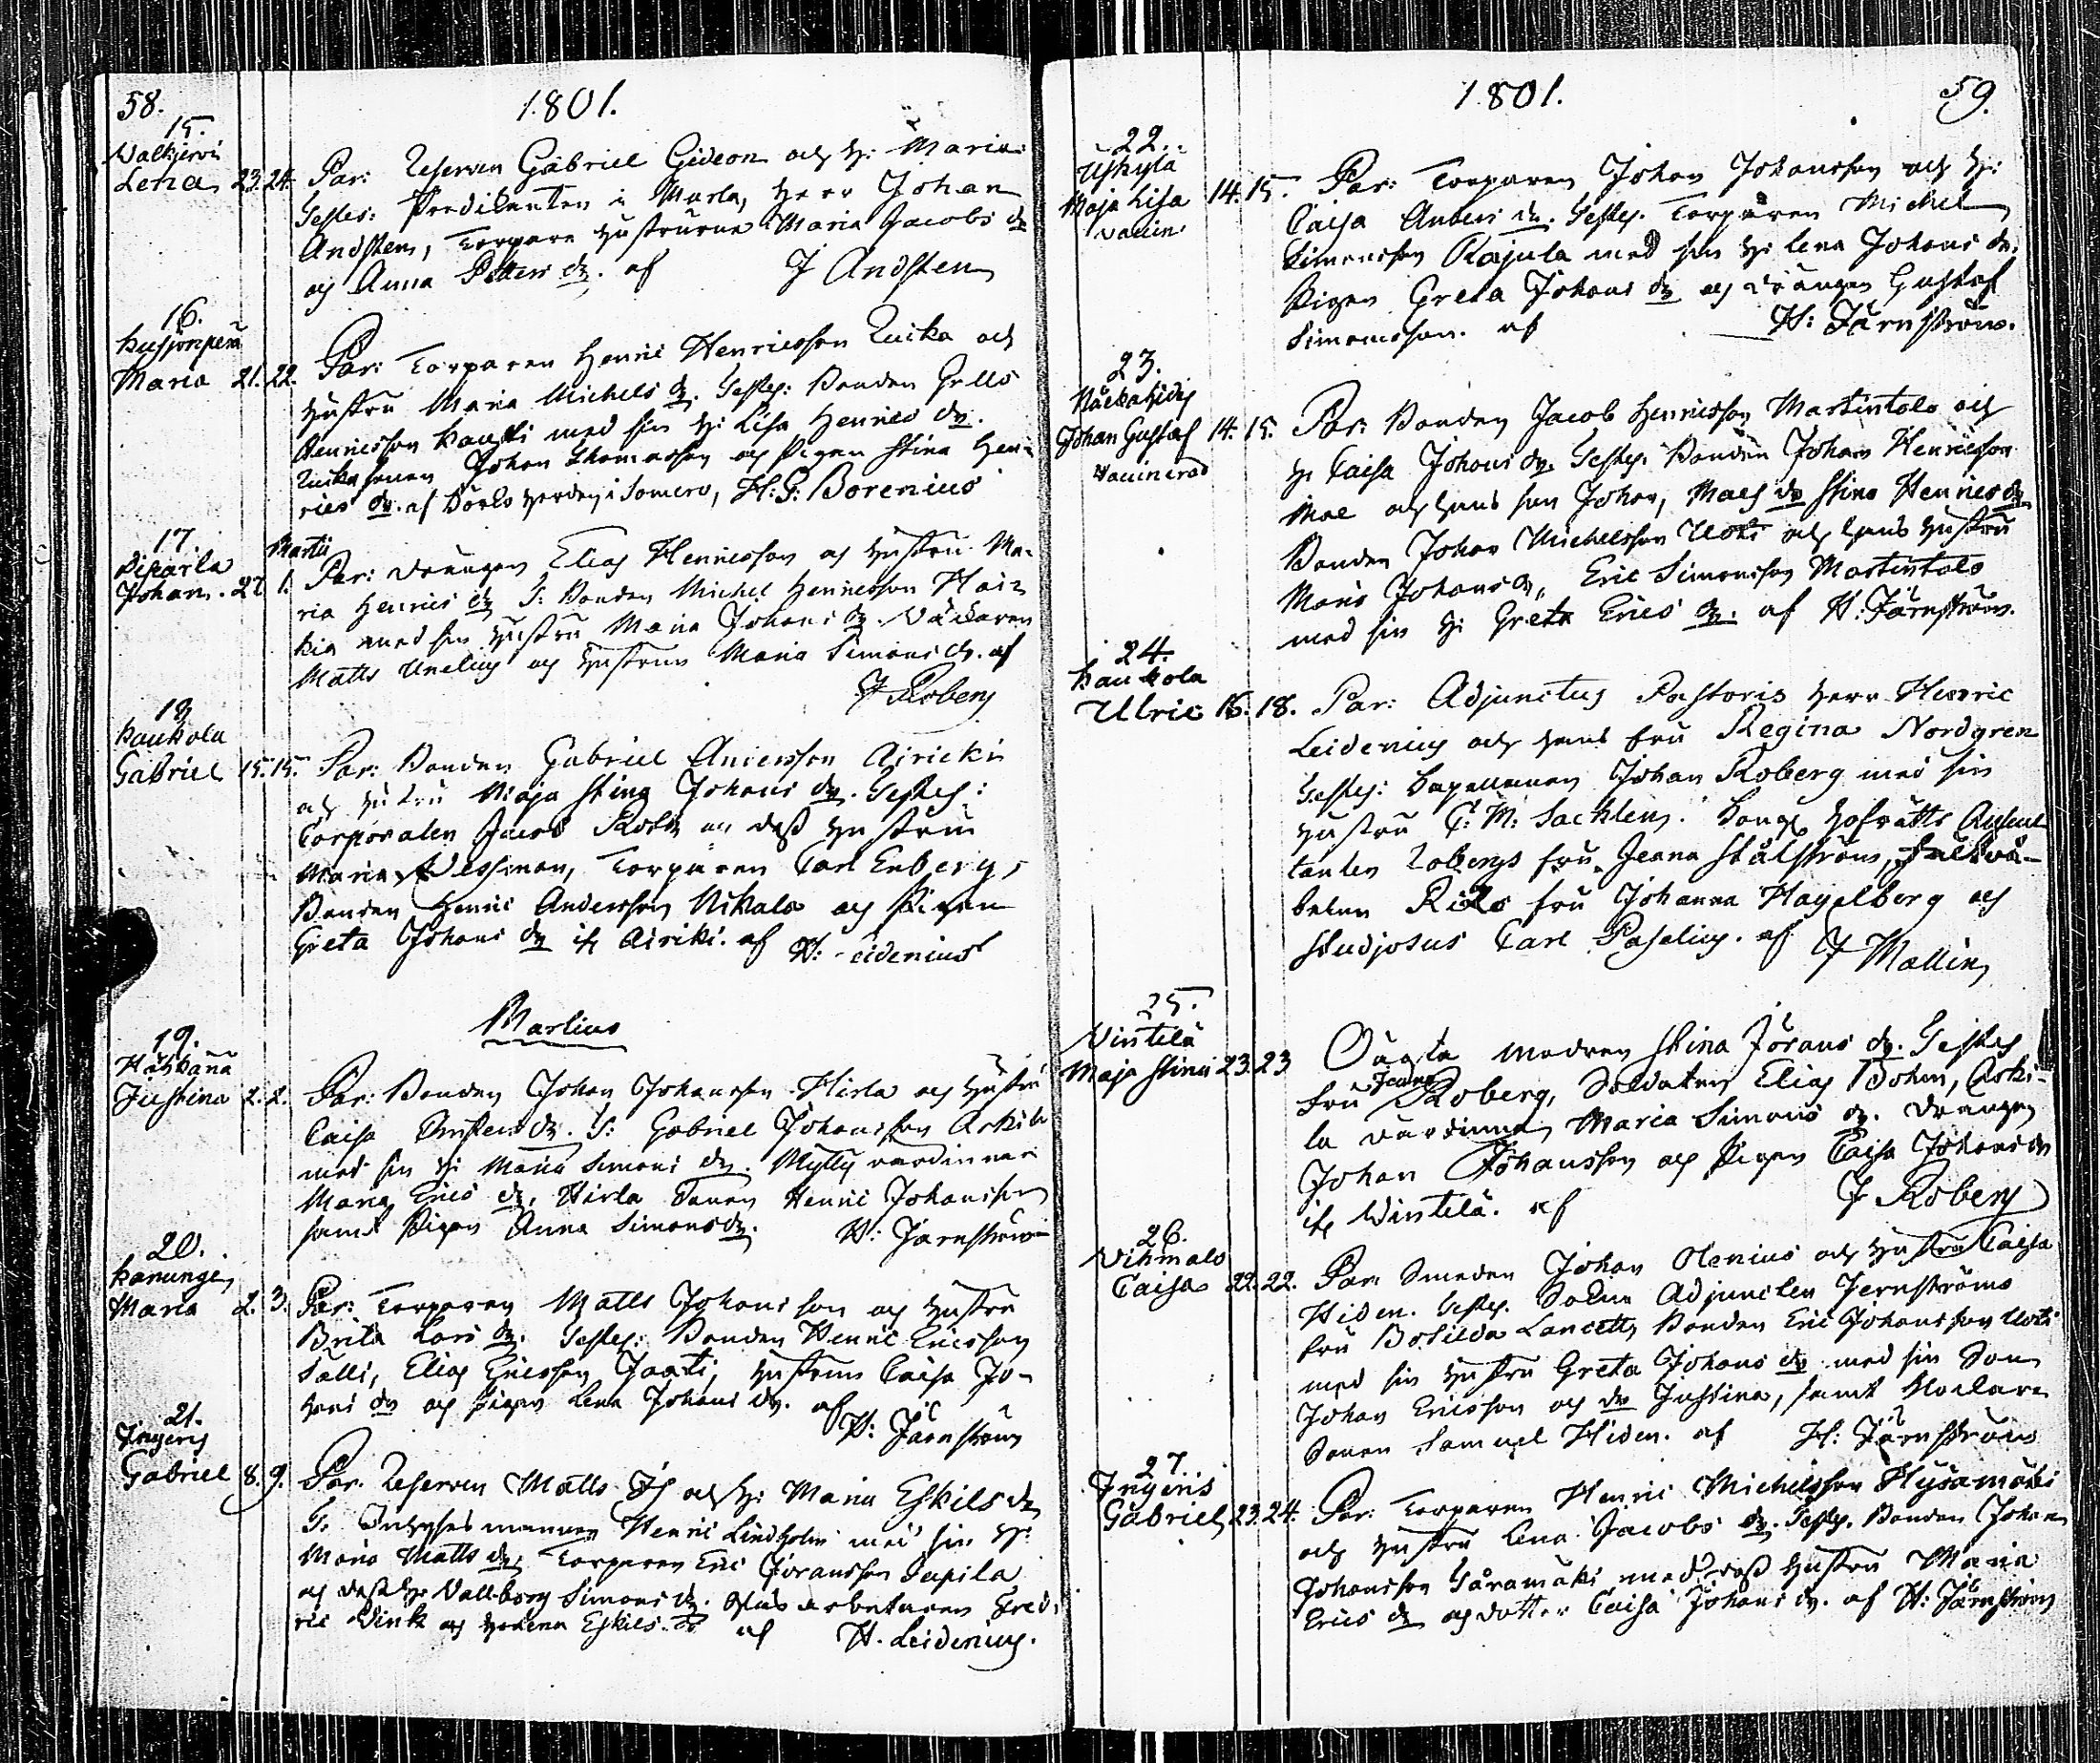 58.
1801.
15.
Walkjervi
Lena 23. 24. Par: Reserven Gabriel Gideon och h: Maria
Testes: Predikanten i Marla, Herr Johan
Andsten, Torpare hustrurna Maria Jacobs dr
och Anna Petters dr. af J Andsten
16.
Maria 21. 22. Par: Torparen Henric Henricsson Zuika och
hustru Maria Michels dr. Testes: Bonden Grels
Henricsson med sin h: Lisa Henrics dr.
Johan Thomasson och Pigan Stina Hen-
rics dr. af i Somero, H: G: Borenius
17.
Martii
Piparla
Johan. 27. 1. Par: Drängen Elias Henricsson och hustru Ma-
ria Henrics dr T: Bonden Michel Henricsson Hai-
kia med sin hustru Maria Johans dr. Väfvaren
Matts Unelius och hustrun Maria Simons dr. af
J Roberg
18
Kaukola
Gabriel 15. 15. Par: Bonden Gabriel Andersson Airicki
och hustru Maja Stina Johans dr. Testes:
Corporalen Jacob och dess hustru
Maria Wessman, Torparen Carl Enberg,
Bonden Henric Andersson Nikala och Pigan
Greta Johans dr ifr Airiki. af H: Leidenius
Martius
19.
Justina 2. 2. Par: Bonden Johan Johansson Hirla och hustru
Caisa dr. T: Gabriel Johansson
med sin h: Maria Simons dr. Mylly värdinnan
Maria Erics dr, Hirla Sonen Henric Johansson
samt Pigan Anna Simons dr. H: Järnström
20.
Kanunge
Maria 2. 3. Par: Torparen Matts Johansson och hustru
Brita Lars dr. Testes: Bonden Henric Ericsson
Salli, Elias Ericsson Jaati, hustrun Caisa Jo-
hans dr och Pigan Lena Johans dr. af
H: Järnström
21.
Ingeris
Gabriel 8. 9. Par. Reserven Matts och h: Maria Eskils dr
T. Henric Lindholm med sin h:
Maria Matts dr, Torparen Eric Jöransson Sapila
och dess h: Wallborg Simons dr. Glas arbetaren Fred-
ric Wink och h: Lena Eskils dr af H. Leidenius.
1801.
59.
22.
Uskyla
Maja Lisa 14. 15. Par: Torparen Johan Johansson och h:
vaccin
Caisa Anders dr. Testes. Torparen Michel
Simonsson Rajula med sin h: Lena Johans dr.
Pigan Greta Johans dr och Drängen Gustaf
Simonsson. af H: Järnström.
23.
Johan Gustaf 14. 15. Par: Bonden Jacob Henricsson Martintalo och
vaccinerad
h: Caisa Johans dr. Testes. Bonden Johan Henricsson
och hans son Johan, dr Stina Henrics dr
Bonden Johan Michelsson Uoti och hans hustru
Maria Johans dr, Eric Simonsson Martintalo
med sin h: Greta Erics dr. af H: Järnström.
24.
Kaukola
Ulric 16. 18. Par: Adjunctus Pastoris Herr Henric
Leidenius och hans fru Regina Nordgren
Testes: Capellanen Johan Roberg med sin
hustru C: M: Sacklen. Kongl Hofrätts Auscul-
tanten Zobergs fru Jeana Stålström, Fältvä-
beln fru Johanna Hagelberg och
Studjosus Carl Paselius. af J Mallin
25.
Vintelä
Maja Stina 23. 23 Oägta modren Stina Jörans dr. Testes
fru Jeana Roberg, Soldaten Elias Bohm, Aski-
la värdinna Maria Simons dr. Drängen
Johan Johansson och Pigan Caisa Johans dr
ifr Wintelä. af J Roberg
26.
Vihmalo
Caisa 22. 22. Par. Smeden Johan Olenius och hustru Caisa
Hiden. Testes. Adjuncten Jernströms
fru Botilda Lancetts Bonden Eric Johansson Uoti
med sin hustru Greta Johans dr med sin Son
Johan Ericsson och dr Justina, samt Klockare
Sonen Samuel Hiden. af H: Järnström
27.
Ingeris
Gabriel 23. 24. Par: Torparen Henric Michelsson Hysämäki
och hustru Lena Jacobs dr. Testes. Bonden Johan
Johansson med dess hustru Maria
Erics dr och dotter Caisa Johans dr. af H: Järnström